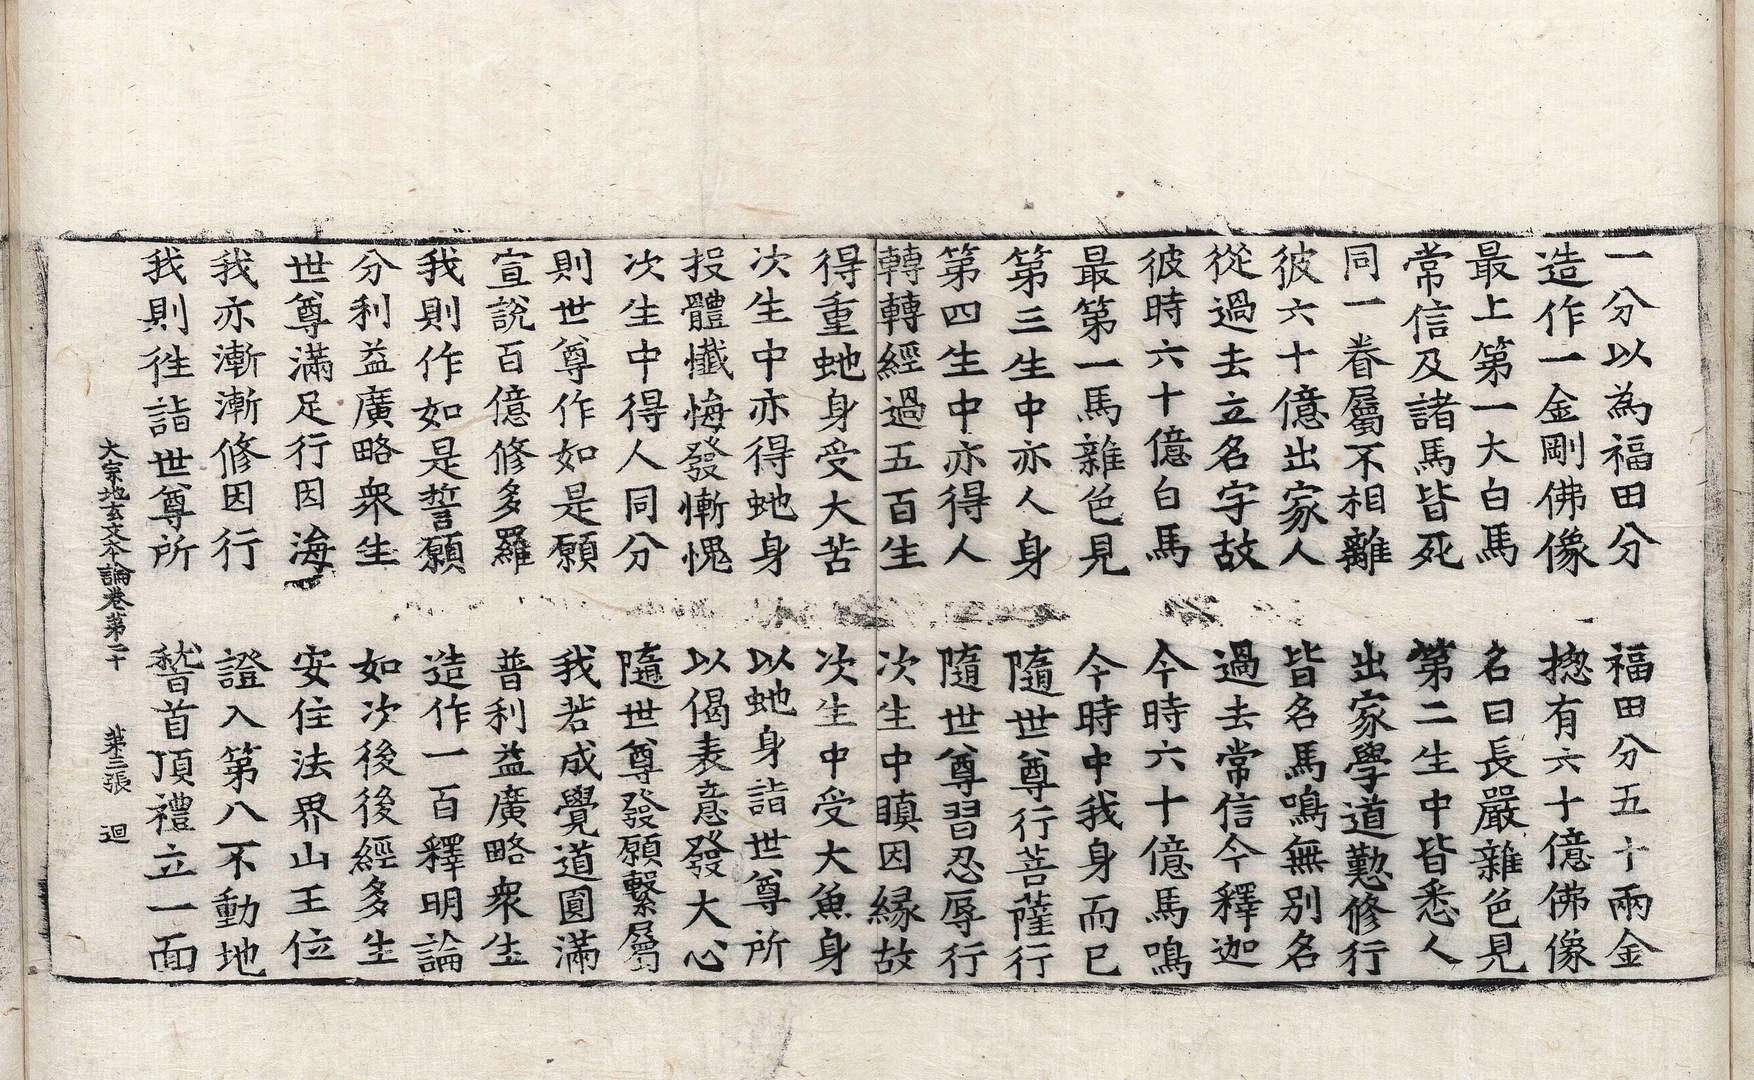 一分以為福田分　福田分五十兩金
造作一金剛佛像　摠有六十億佛像
最上第一大白馬　名曰長嚴雜色見
常信及諸馬皆死　第二生中皆悉人
同一眷屬不相離　出家學道懃修行
彼六十億出家人　皆名馬鳴無別名
從過去立名字故　過去常信今釋迦
彼時六十億白馬　今時六十億馬鳴
最第一馬雜色見　今時中我身而已
第三生中亦人身　隨世尊行菩薩行
第四生中亦得人　隨世尊習忍辱行
轉轉經過五百生　次生中瞋因縁故
得重虵身受大苦　次生中受大魚身
次生中亦得虵身　以虵身詣世尊所
投體懺悔發慚愧　以偈表意發大心
次生中得人同分　隨世尊發願繫屬
則世尊作如是願　我若成覺道圓滿
宣說百億修多羅　普利益廣略衆生
我則作如是誓願　造作一百釋明論
分利益廣略衆生　如次後後經多生
世尊滿足行因海　安住法界山王位
我亦漸漸修因行　證入第八不動地
我則往詣世尊所　稽首頂禮立一面
大宗地玄文本論卷第二十　第三張　迴